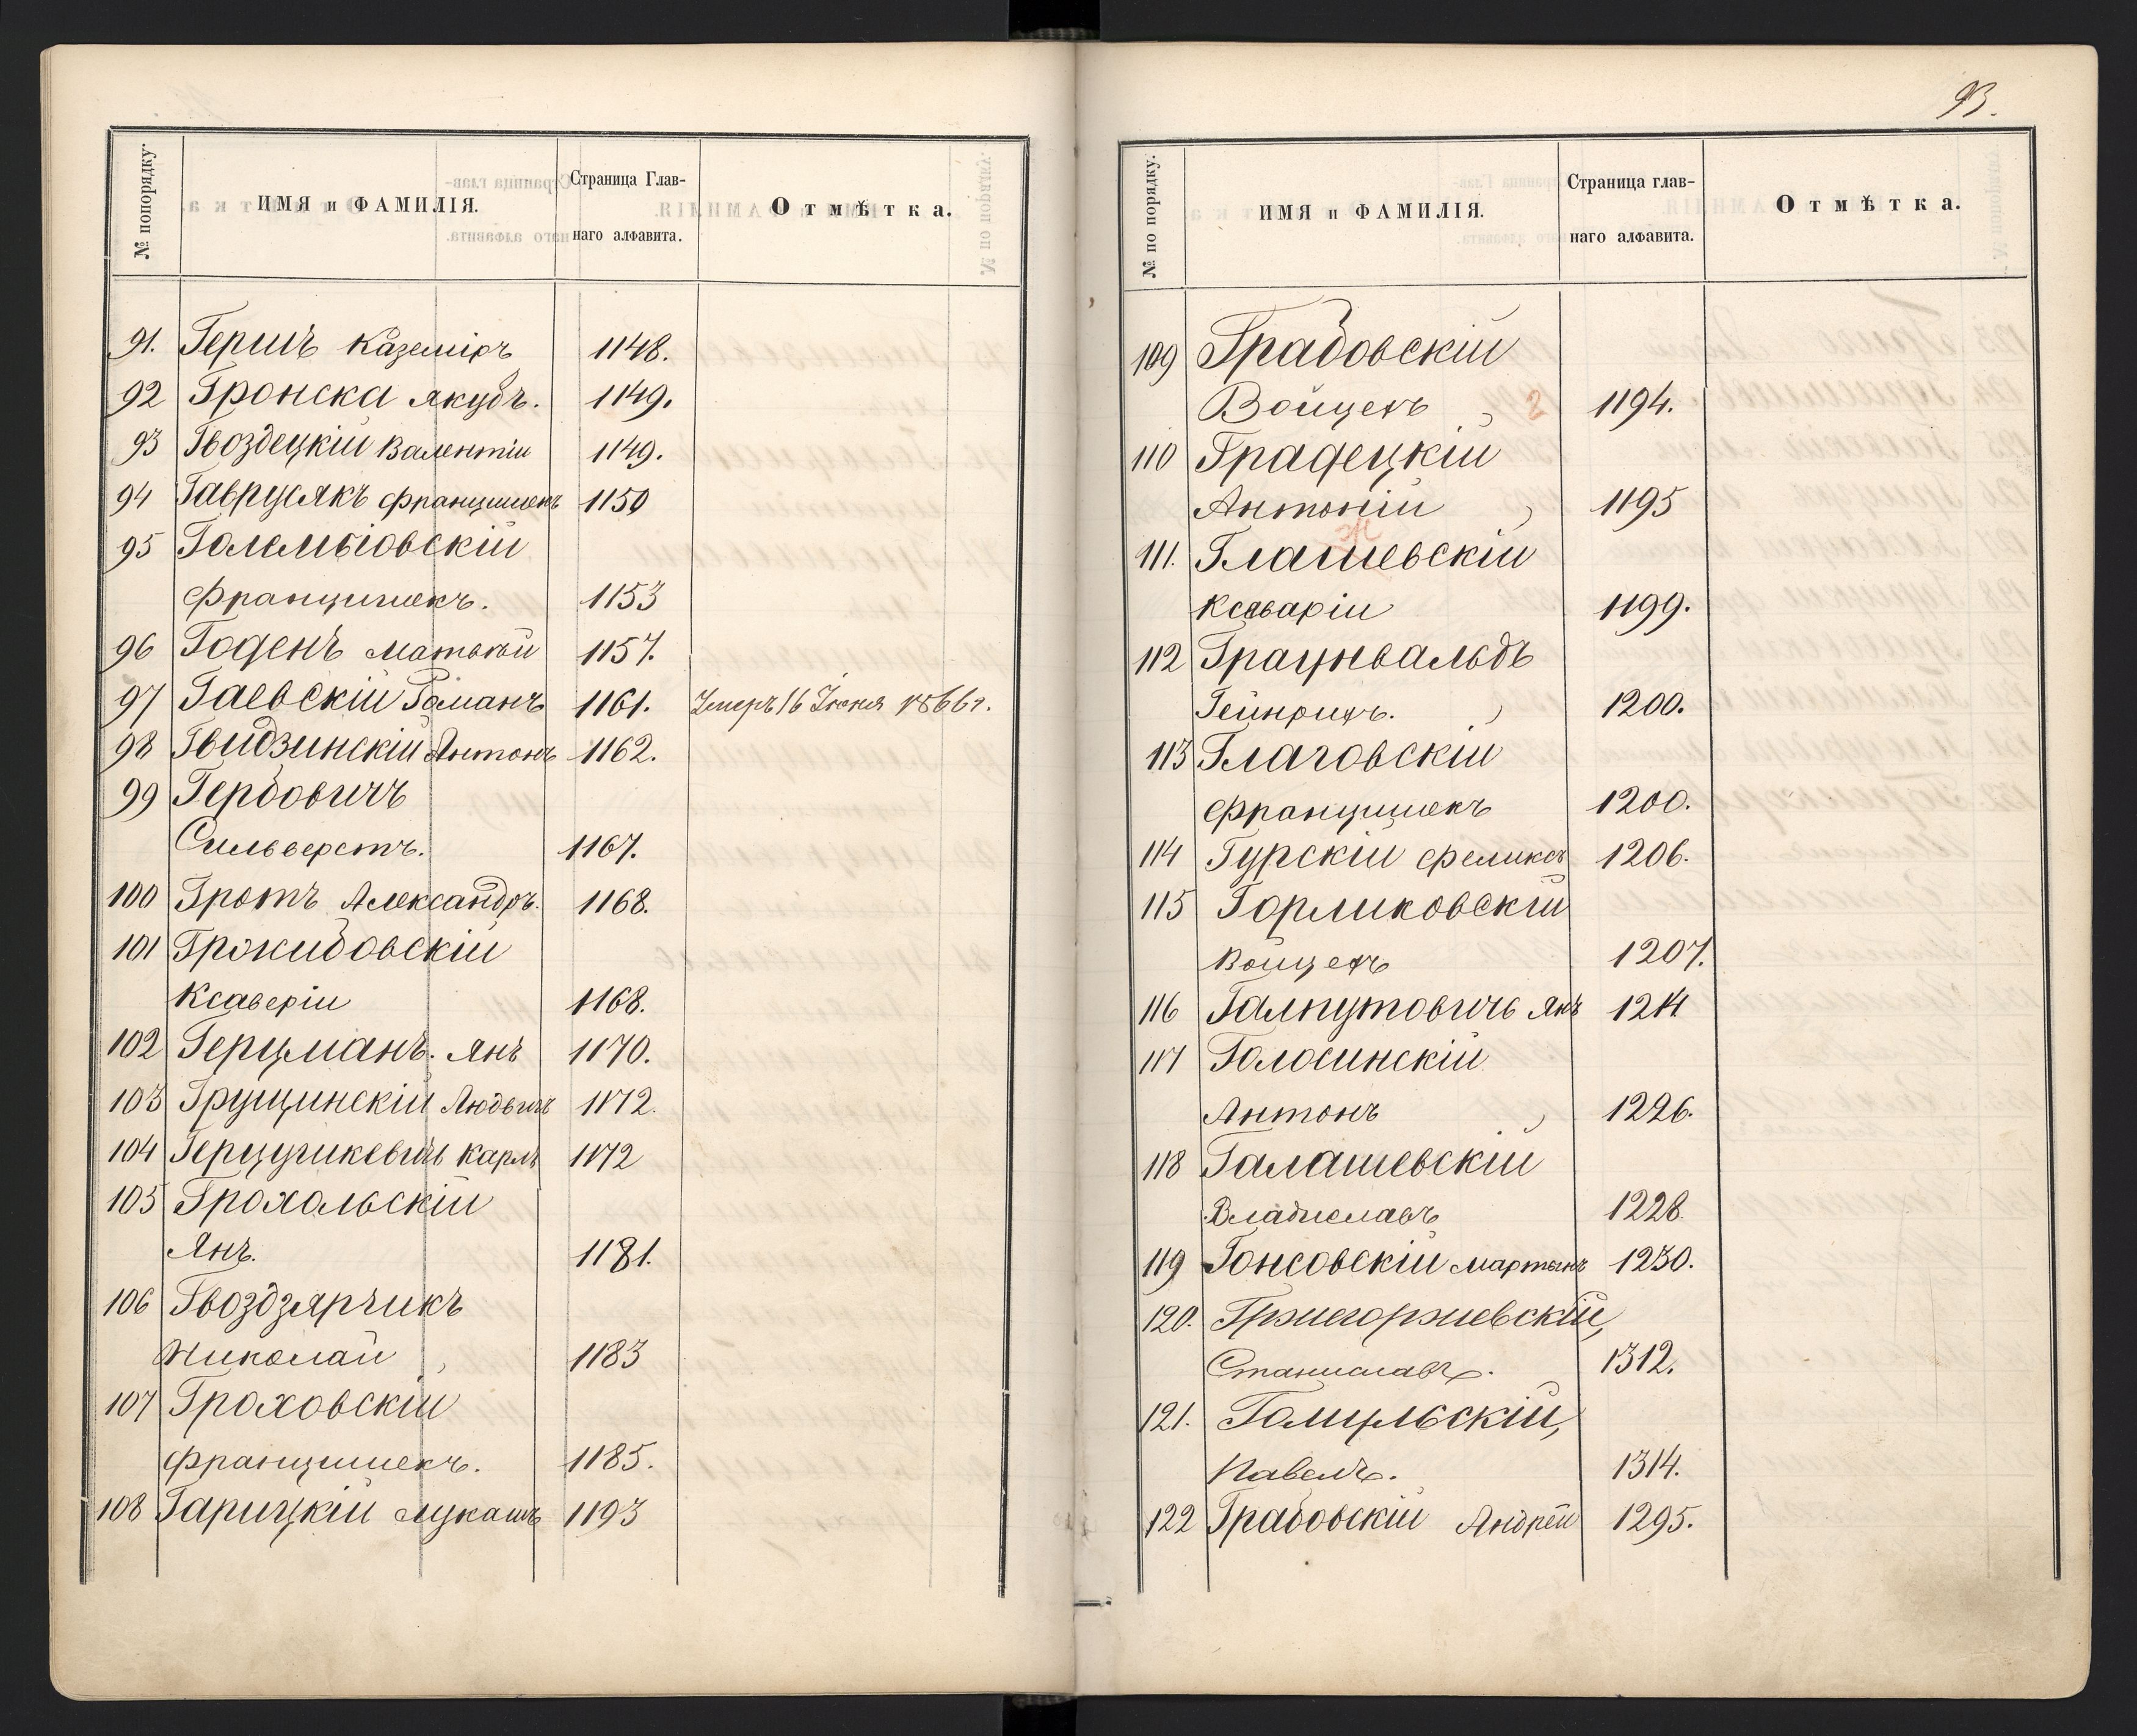 № попорядку.
ИМЯ и ФАМИЛІЯ.
Страница Глав-
наго алфавита.
Отмѣтка.
91. Гершъ Каземіръ 1148.
92 Гронска Якубъ. 1149.
93 Гвоздецкій Валентій 1149.
94 Гаврусякъ Францишекъ 1150
95 Голембіовскій
Францишекъ. 1153
96 Годенъ Матвѣй 1157.
97 Гаевскій Романъ 1161. Умеръ 16 Іюня 1866 г.
98 Гвидзинскій Антонъ 1162.
99 Гербовичъ
Сильверстъ. 1167.
100 Гротъ Александръ. 1168.
101 Гржидовскій
Ксаверій 1168.
102 Герцманъ. Янъ 1170.
103 Грущинскій Людвигъ 1172.
104 Герцушкевичъ Карлъ 1172
105 Грохольскій
Янъ. 1181.
106 Гвоздзярчикъ
Николай 1183
107 Гроховскій
Францишекъ. 1185.
108 Гарицкій Лукашъ 1193
93.
№ по порядку.
ИМЯ и ФАМИЛІЯ.
Страница глав-
наго алфавита.
Отмѣтка.
109 Грабовскій
Войцехъ 2 1194.
110 Градецкій
Антоній 1195
111. Глашевскій
Ксаварій 1199.
112 Граунвальдъ
Гейнрихъ. 1200.
113 Глаговскій
Францишекъ 1200.
114 Гурскій Феликсъ 1206.
115 Горликовскій
Войцехъ 1207.
116 Галпутовичъ Янъ 1214
117 Голосинскій
Антонъ 1226.
118 Галашевскій
Владиславъ 1228.
119 Гонсовскій Мартынъ 1230.
120. Гржегоржевскій,
Станиславъ. 1312.
121. Гомульскій,
Павелъ. 1314.
122 Грабовскій Андрей 1295.